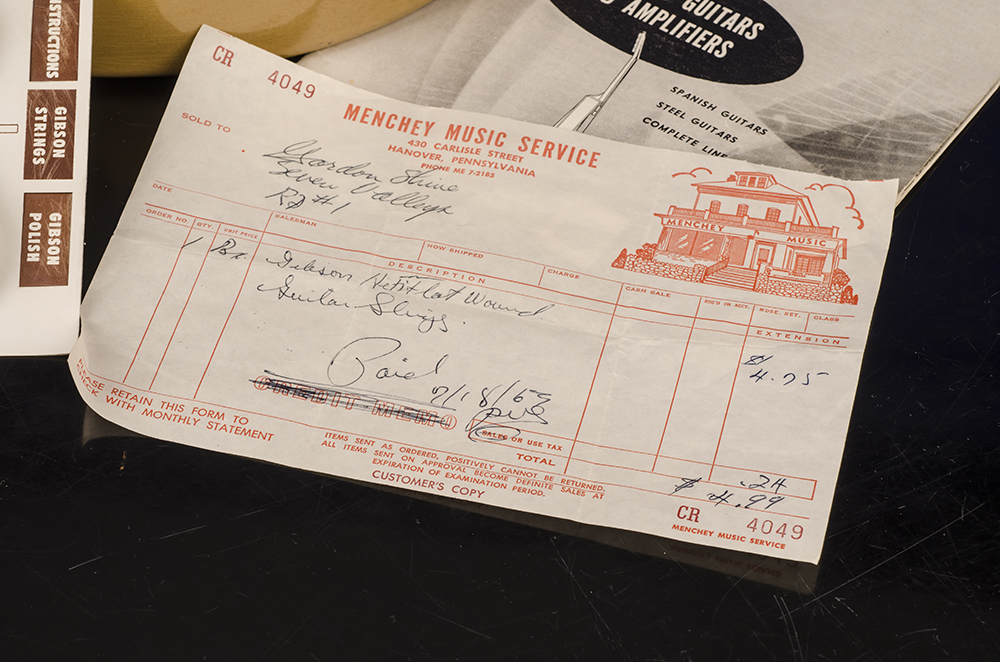 INSTRUCTIONS
GIBSON
STRINGS
GIBSON
POLISH
GUITARS
AMPLIFIERS
SPANISH GUITARS
STEEL GUITARS
COMPLETE LINE
CR 4049
MENCHEY MUSIC SERVICE
430 CARLISLE STREET
HANOVER, PENNSYLVANIA
PHONE ME 7-2185
SOLD TO
Gordon Shue
Seven Valleys
RD #1
MENCHEY MUSIC
DATE SALESMAN HOW SHIPPED CHARGE CASH SALE REC'D ON ACCT. MDSE. RET. CLASS
ORDER NO. QTY. UNIT PRICE DESCRIPTION EXTENSION
1 Gibson Flat Wound $4.75
Guitar
Paid
CREDIT MEMO
SALES OR USE TAX .24
TOTAL $4.99
PLEASE RETAIN THIS FORM TO
CHECK WITH MONTHLY STATEMENT
ITEMS SENT AS ORDERED, POSITIVELY CANNOT BE RETURNED.
ALL ITEMS SENT ON APPROVAL BECOME DEFINITE SALES AT
EXPIRATION OF EXAMINATION PERIOD.
CUSTOMER'S COPY
CR 4049
MENCHEY MUSIC SERVICE